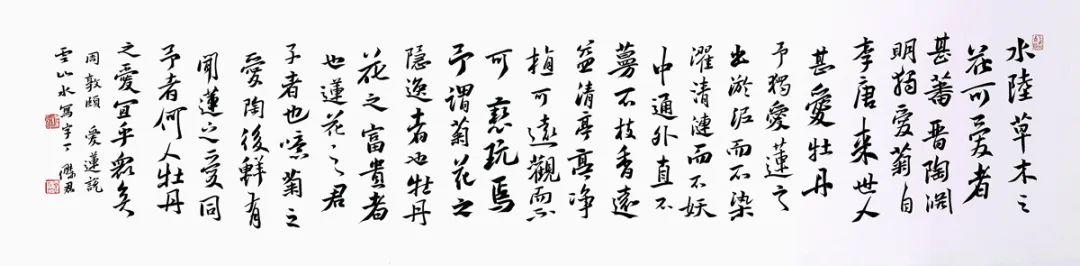 水陸草木之
花可愛者
甚蕃晋陶淵
明獨愛菊自
李唐来世人
甚愛牡丹
予獨愛蓮之
出淤泥而不染
濯清漣而不妖
中通外直不
蔓不枝香遠
益清亭亭净
植可遠觀而不
可褻玩焉
予謂菊花之
隱逸者也牡丹
花之富貴者
也蓮花之君
子者也噫菊之
愛陶後鮮有
聞蓮之愛同
予者何人牡丹
之愛宜乎衆矣
周敦頤 愛蓮説
雲山水寫字